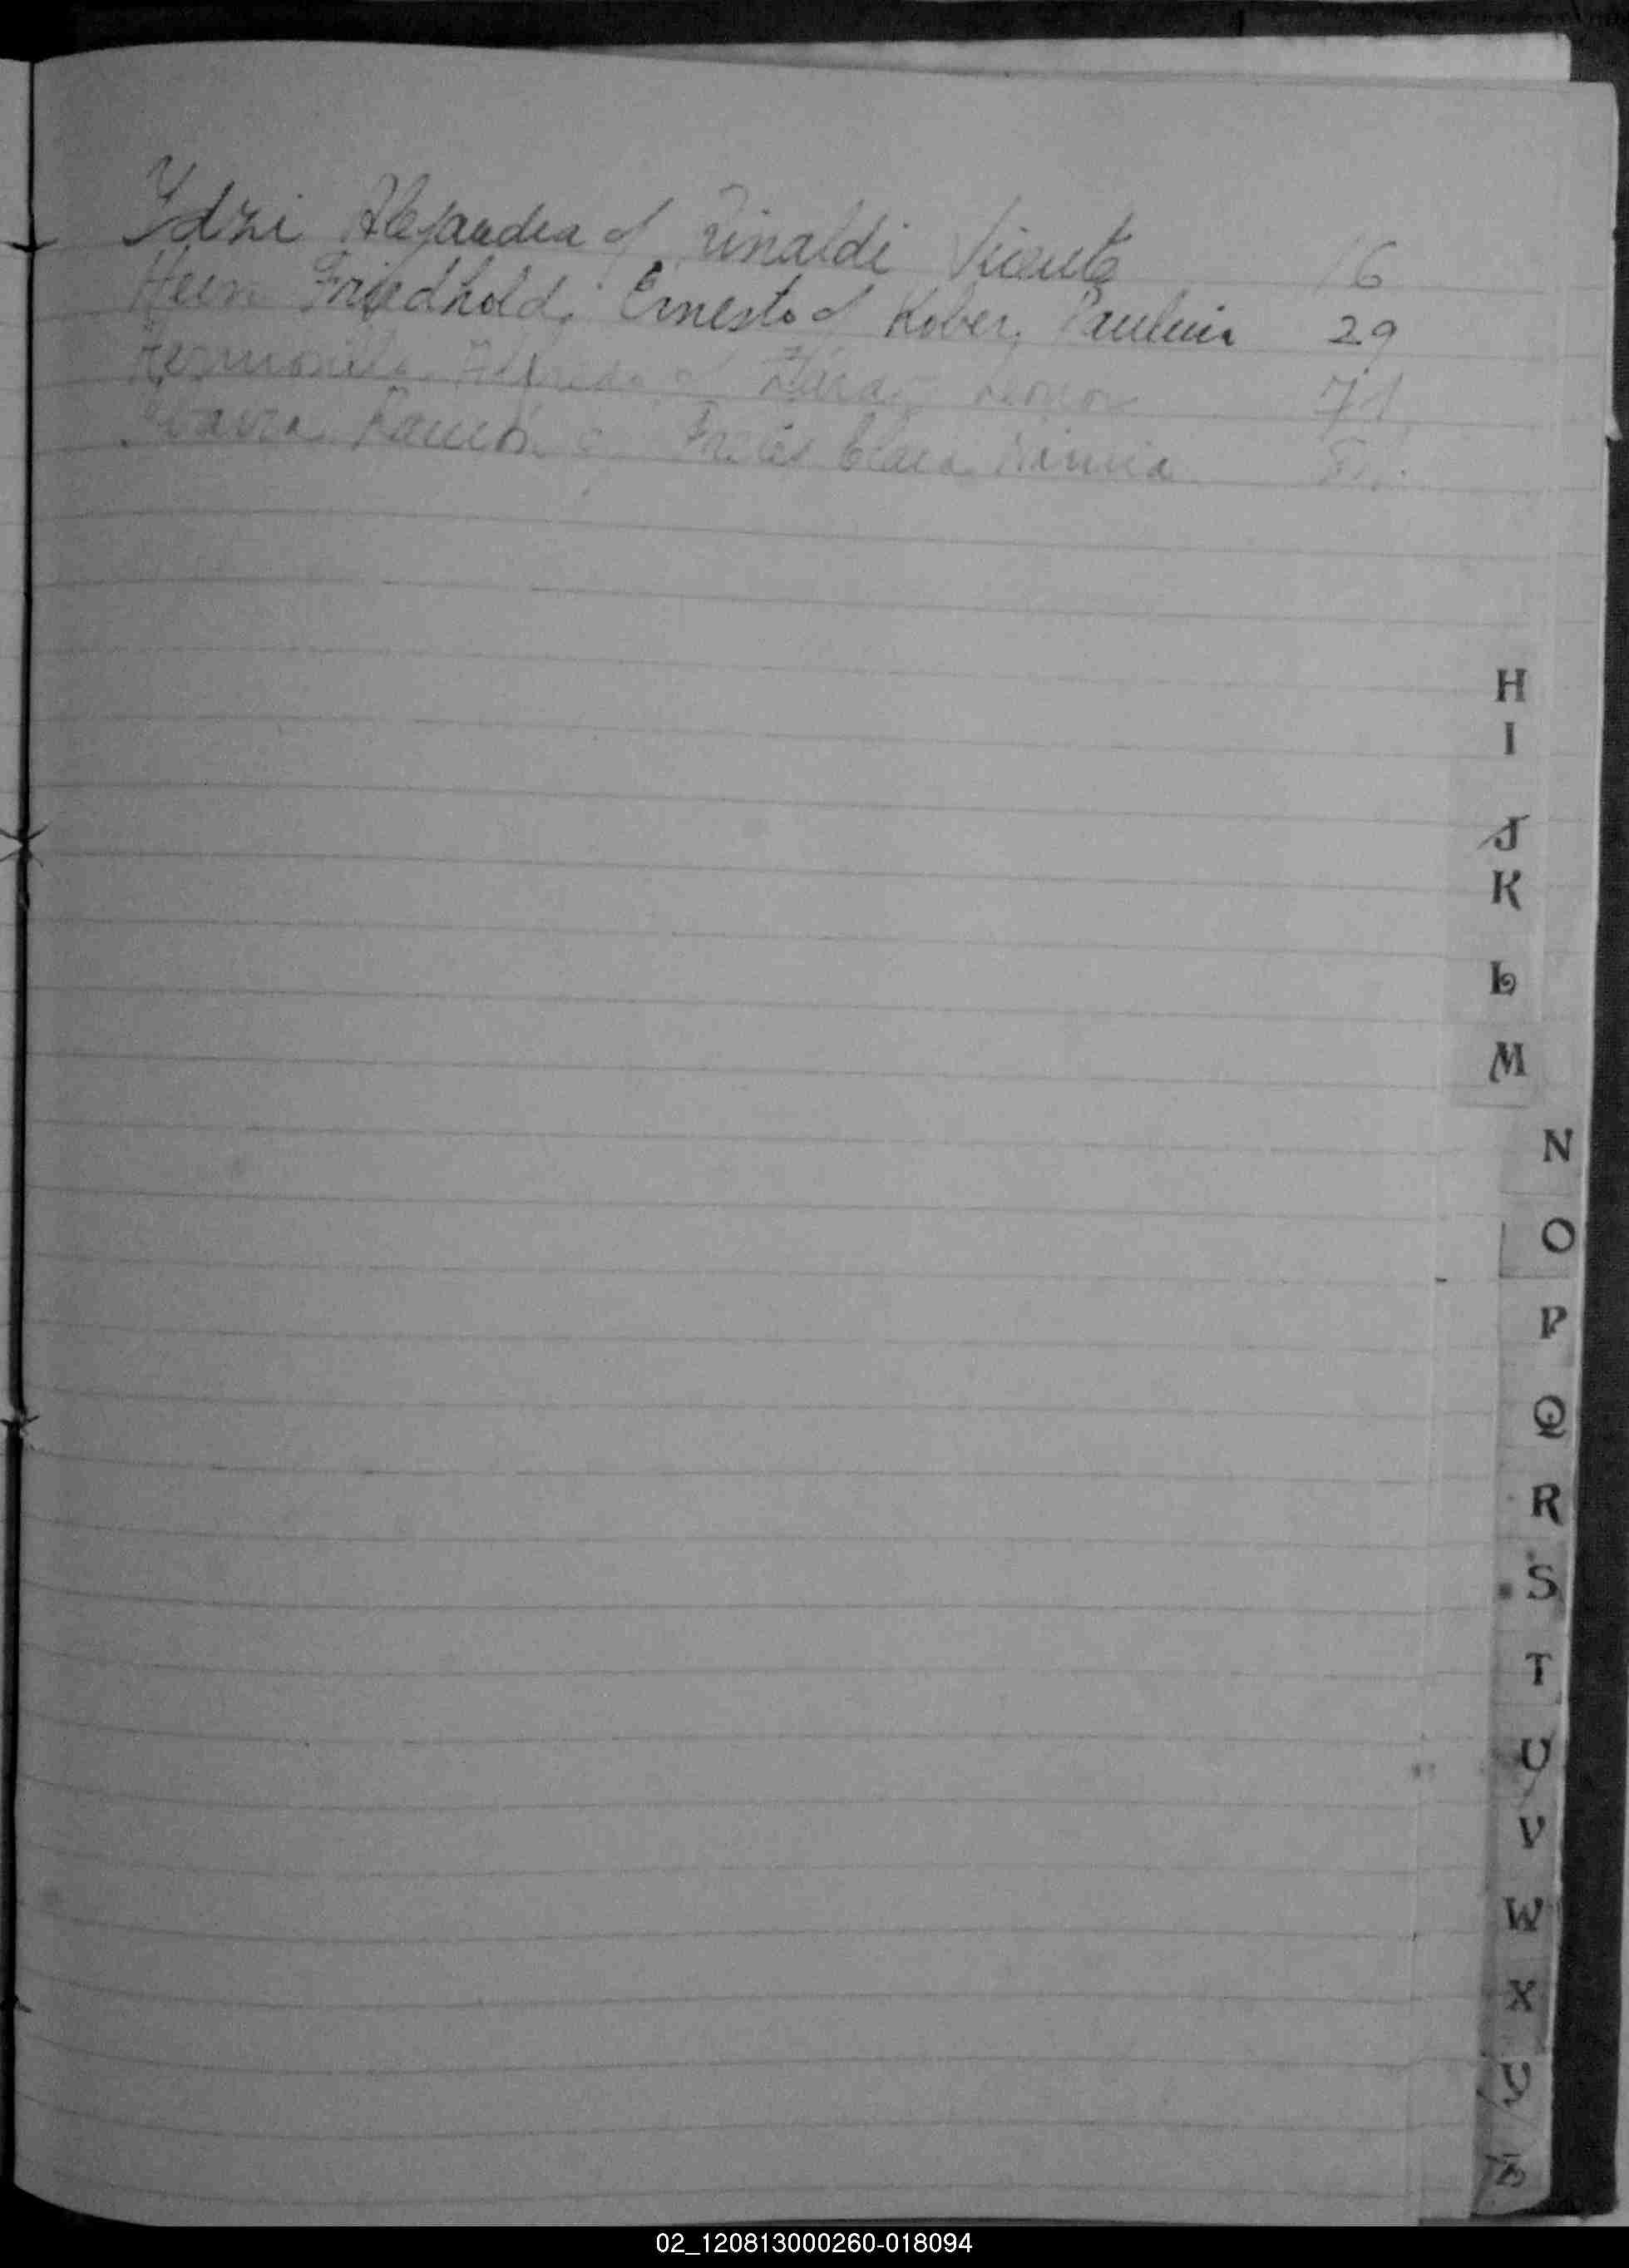 Ydzi Alejandra c/ Rinaldi Vicente 16
Hein Friedhold, Ernesto c/ Kober, Paulina 29
Alfredo c/ 71
Ramón c/ Clara
H
I
J
K
L
M
N
O
P
Q
R
S
T
U
V
W
X
Y
Z
02_120813000260-018094